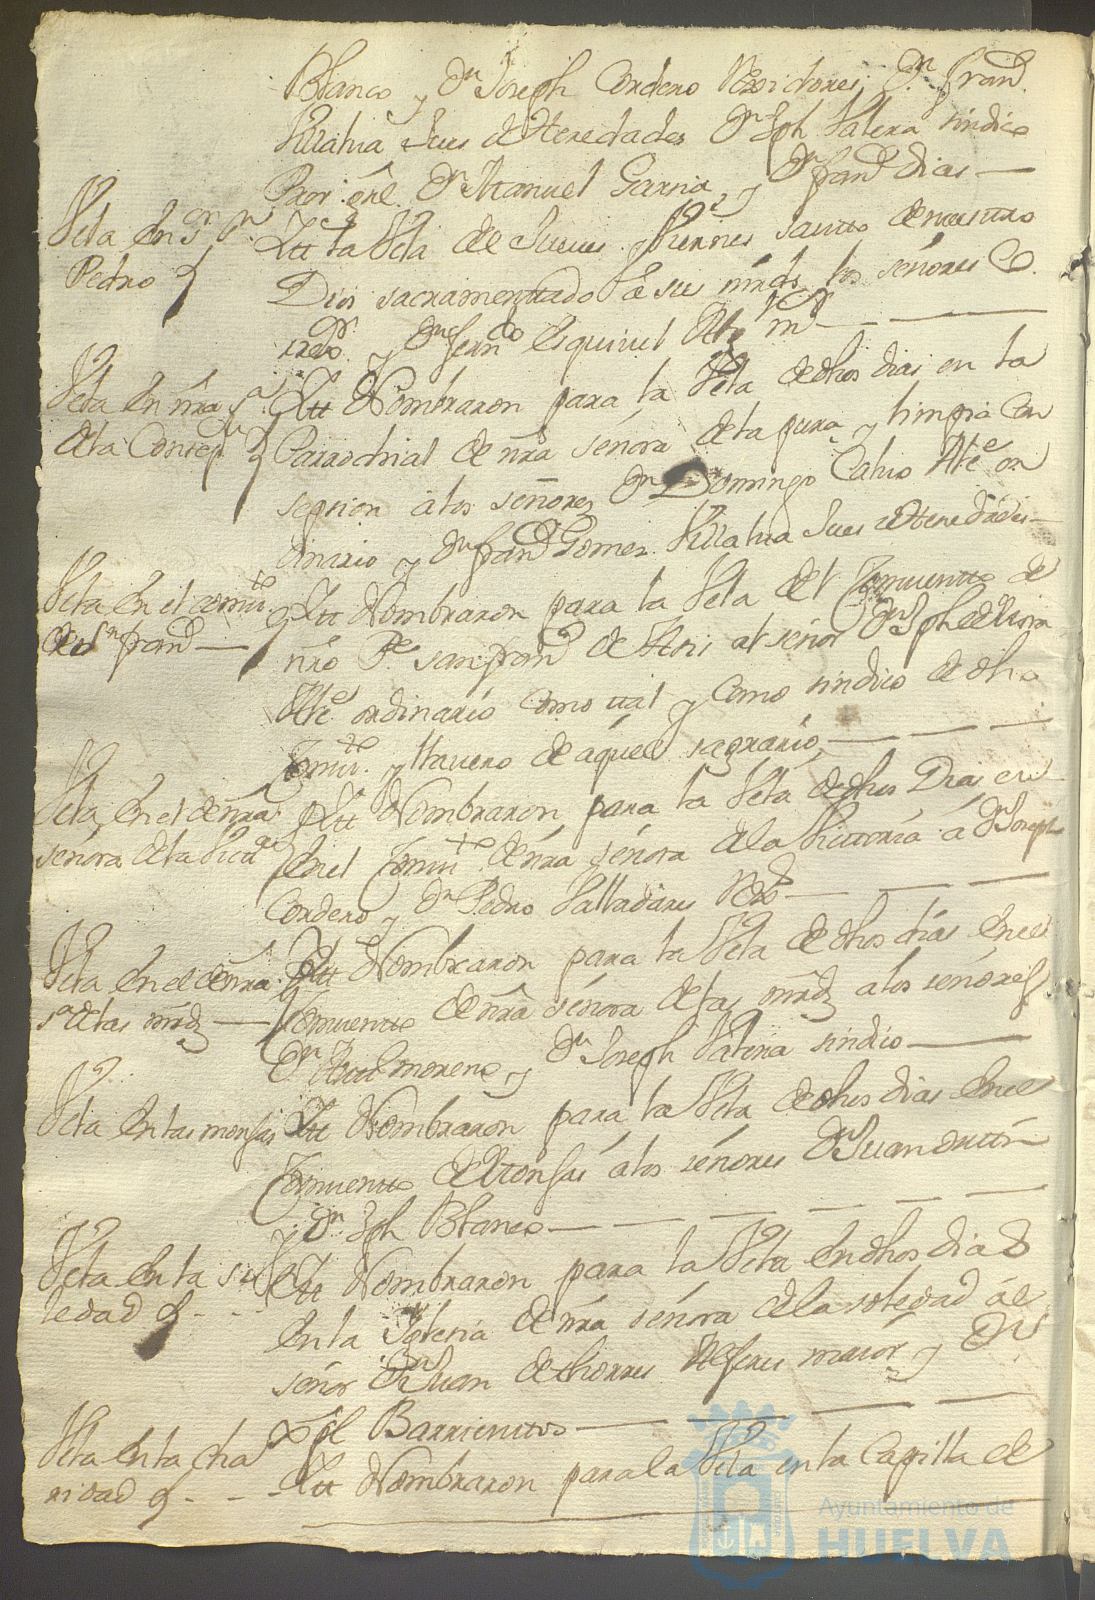 Blanco y Dn Joseph Cordero Rexidores, Dn Francº
Villalva Jues de Heredades Dn Jph Valera sindico
Pror. gral. Dn Manuel Garsia, y Dn Francº Dias —
Vela en Sn Sn Pedro
Ytt la Vela de Jueves y Viernes santo de nuestro
Dios sacramentado a sus mrds los señores Co
y Dn Ferndo Esquivel Alg mr — —
Vela en nra Sra de la Consepn
Ytt Nombraron para la Vela de dhos dias en la
Parrochial de nra señora de la pura y limpia Con
sepsion a los señores Dn Domingo Calvo Alce or
dinario y Dn Francº Gomez Villalva Jues de Heredades
Vela en el convto de Sn Francº —
Ytt Nombraron para la Vela del Convento de
nro Pe san Francº de Asis al señor Dn Jph de
Alce ordinario como tal y como sindico de dho
Convto y llavero de aquel sagrario — — —
Vela en el de nra señora de la Victa
Ytt Nombraron para la Vela de dhos Dias en
en el Convto de nra señora de la Victoria á Dn Joseph
Cordero y Dn Pedro Valladares — — —
Vela en el de nra Sa de las mrds —
Ytt Nombraron para la Vela de dhos dias en el
Convento de nra señora de las mrds a los señores
Dn moreno y Dn Joseph Valera sindico —
Vela en las monjas
Ytt Nombraron para la Vela de dhos dias en el
Convento de Monjas á los señores Dn Juan
y Dn Jph Blanco — — — — —
Vela en la soledad
Ytt Nombraron para la Vela en dhos dias
en la Yglesia de nra señora de la soledad ál
señor Dn Juan de thorres Alferes maior y Dn
Barrientos — — — —
Vela en la charidad
Ytt Nombraron para la Vela en la Capilla de
Ayuntamiento de
HUELVA